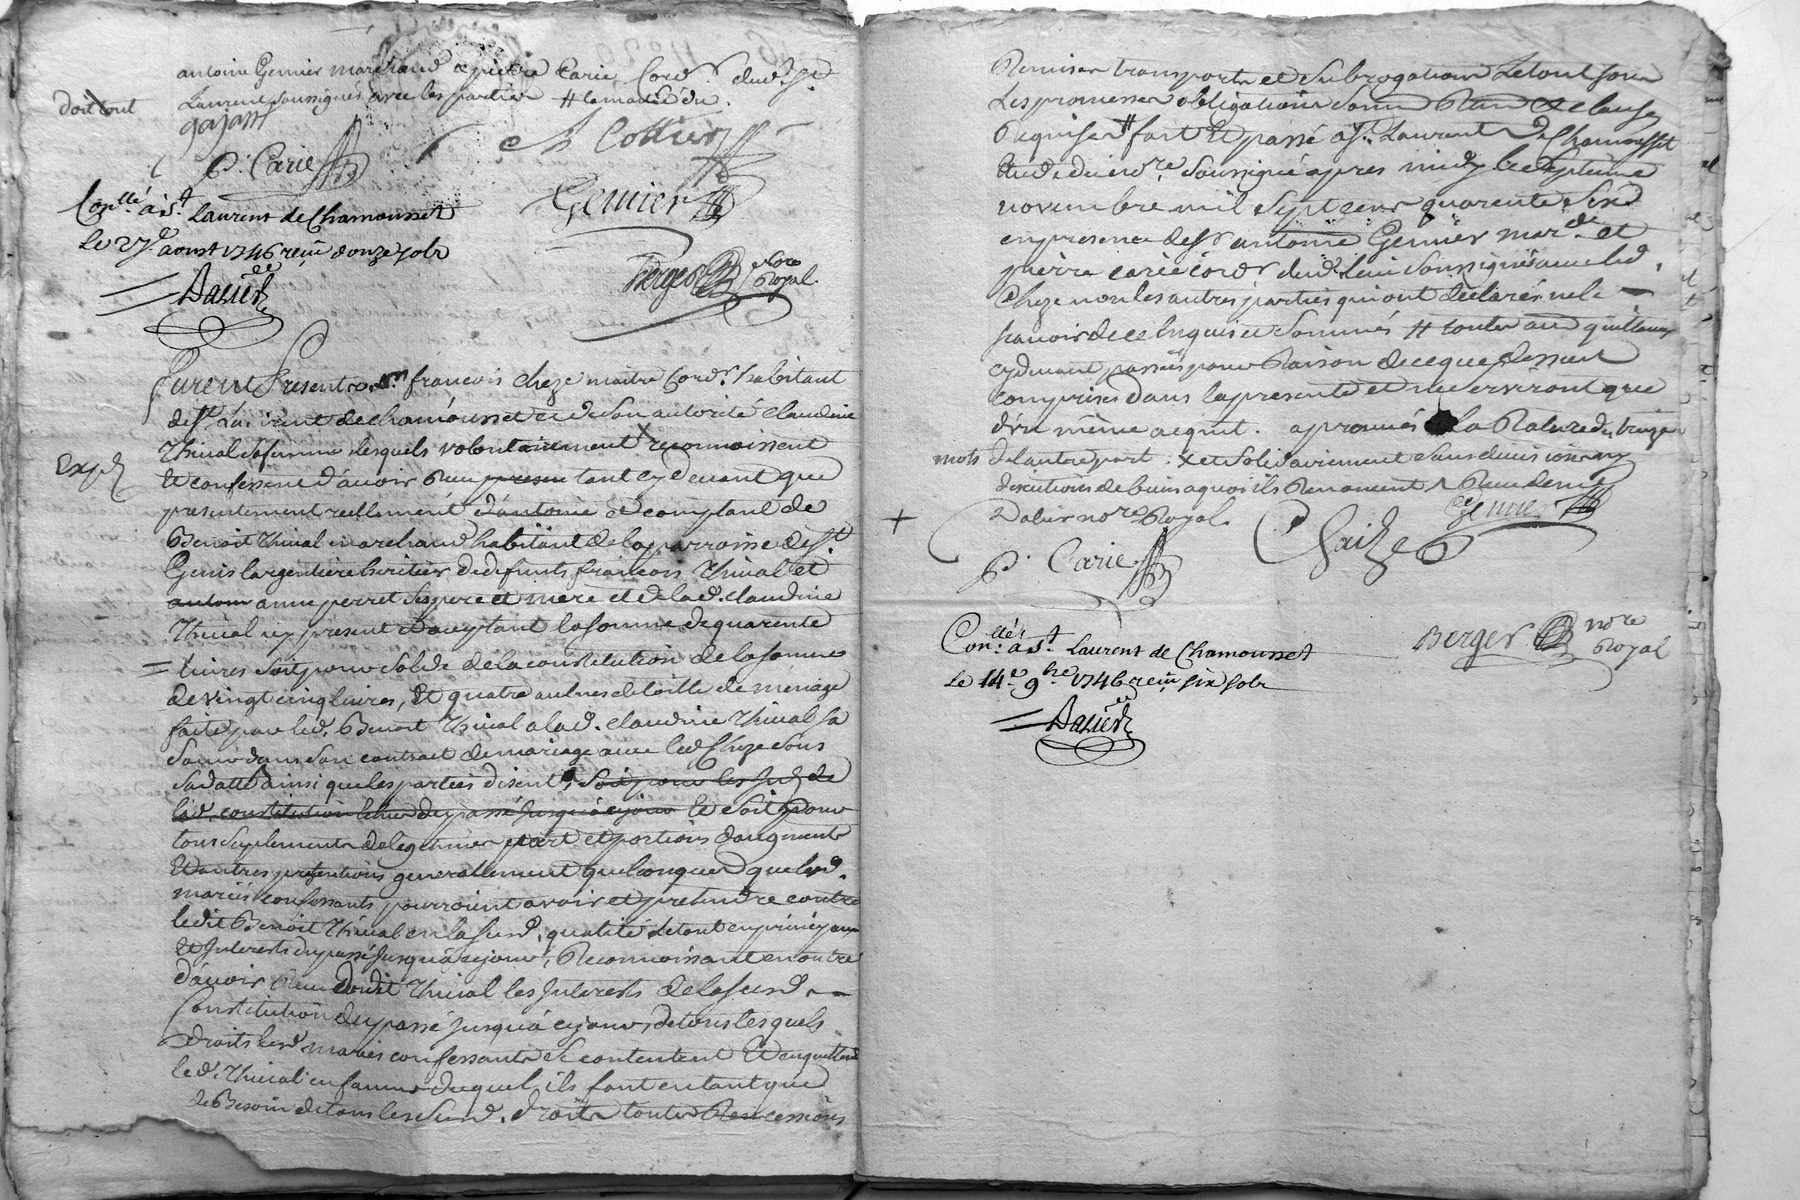 antoine Gernier marchand et pierre Carie Cord.r dud. St
doit tout
Laurent soussignés avec les parties # la moitié du
gajast
P. Carie
A Cottier
Con.llé à St Laurent de Chamousset
Gernier
le 27.e aoust 1746 reçu donze sols
Dalier
Berger no.re Royal
furent Presents sr. françois cheze maitre Cord.r habitant
de St Laurent de chamousset et de son autorité claudine
thival sa femme lesquels volontairement x reconnoissent
Exp.d
et confessent d'avoir Reçu presen tant cy devant que
presentement reellement d'antoine et comptant de
Benoit thival marchand habitant de la parroisse de St
Genis largentiere heritier de defunts françois thival et
antoin anne perret ses pere et mere et de lad. claudine
thival icy present et acceptant la somme de quarente
= livres soit pour solde de la constitution de la somme
de vingt cinq livres, et quatre aulnes de toille de menage
faite par led. Benoit thival a lad. claudine thival sa
soeur dans son contract de mariage avec led Cheze sous
sa datte ainsi que les parties disent, soit pour les Int. de
lad. constitution du passé jusqu'à ce jour et soit pour
tous suplements de legitime part et portions d'augments
et autres pretentions generallement quelconques que lesd.
mariés confessants pourroient avoir et pretendre contre
ledit Benoit thival en la susd. qualité le tout en principaux
et Interests du passé jusqu'à ce jour, Reconnoissant en outre
d'avoir Reçu dudit thival les Interests de la susd.
Constitution du passé jusqu'à ce jour, de tous lesquels
droits lesd mariés confessants se contentent et en quittent
led. thival en faveur duquel ils font entant que
de Besoin de tous les susd. droits toutes Rem cessions
Remises transports et subrogations le tout sous
les promesses obligations soum Ren et clauses
Requises # fait et passé à St Laurent de Chamousset
etude du no.re soussigné apres midy le septieme
novembre mil sept cens quarente six
en presence de sr antoine Gernier mar.d et
pierre carie cord.r dud. lieu soussignés avec led.
Cheze non les autres parties qui ont declarés ne le
sçavoir de ce enquis et sommés # toutes autres quittances
cydevant passées pour Raison de ce que dessus
comprises dans la presente et ne serviront que
d'un même acquit. aprouvés la Rature de treize
mots de l'autre part. x et solidairement sans division ny
discution de biens a quoi ils Renoncent
Dalier no.re Royal.
Gernier
+
P. Carie
Chaize
Con.llé à St Laurent de Chamousset
Berger no.re Royal
le 14.e 9.bre 1746 reçu six sols
Dalier